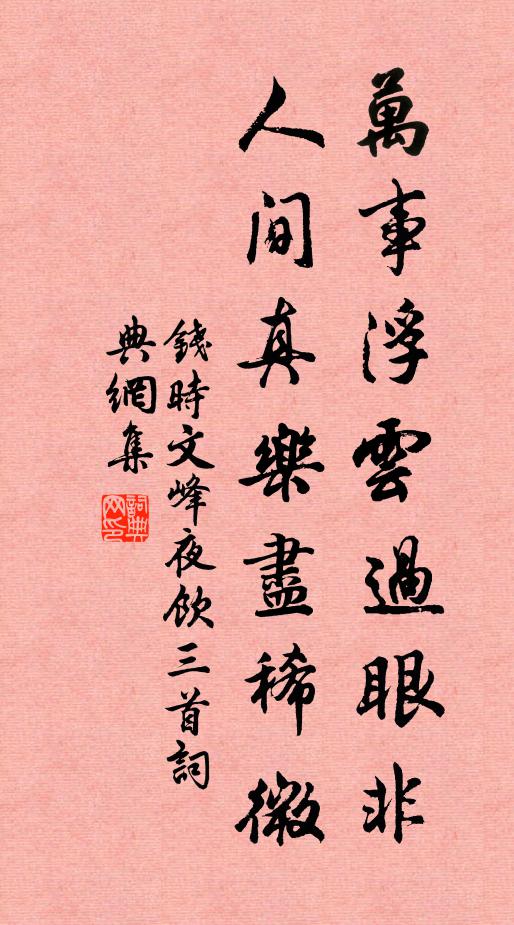 萬事浮雲過眼非
人間真樂盡稀微
錢時文峰夜飲三首詞
典網集
詞典網印